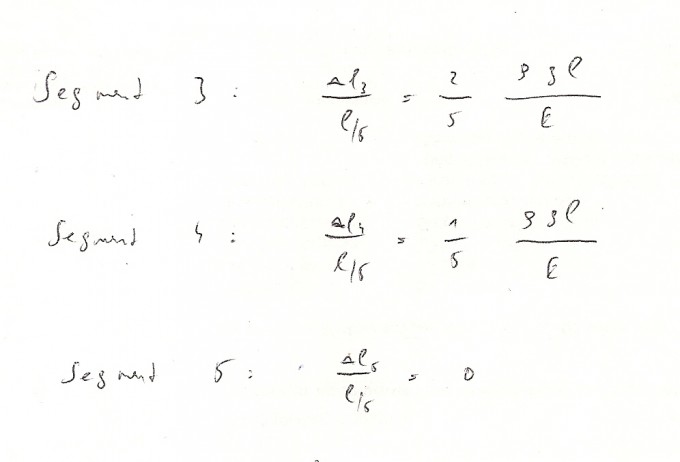 Segment 3 : Δl₃ / l/5 = 2/5 ρgl / E
Segment 4 : Δl₄ / l/5 = 1/5 ρgl / E
Segment 5 : Δl₅ / l/5 = 0